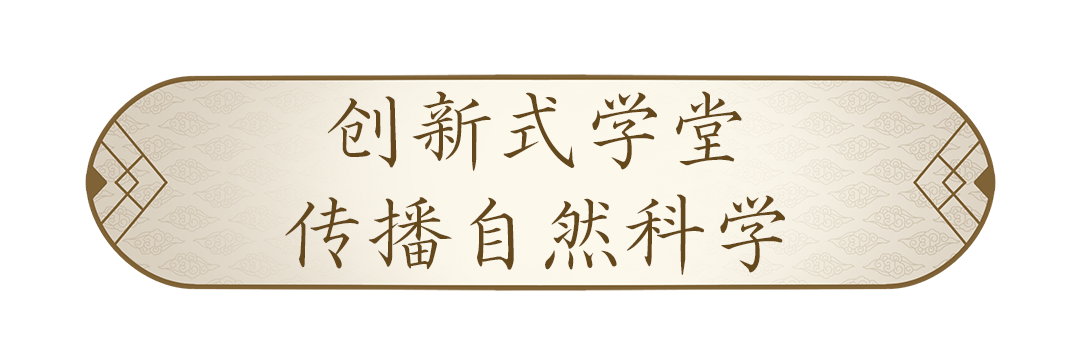 创新式学堂
传播自然科学